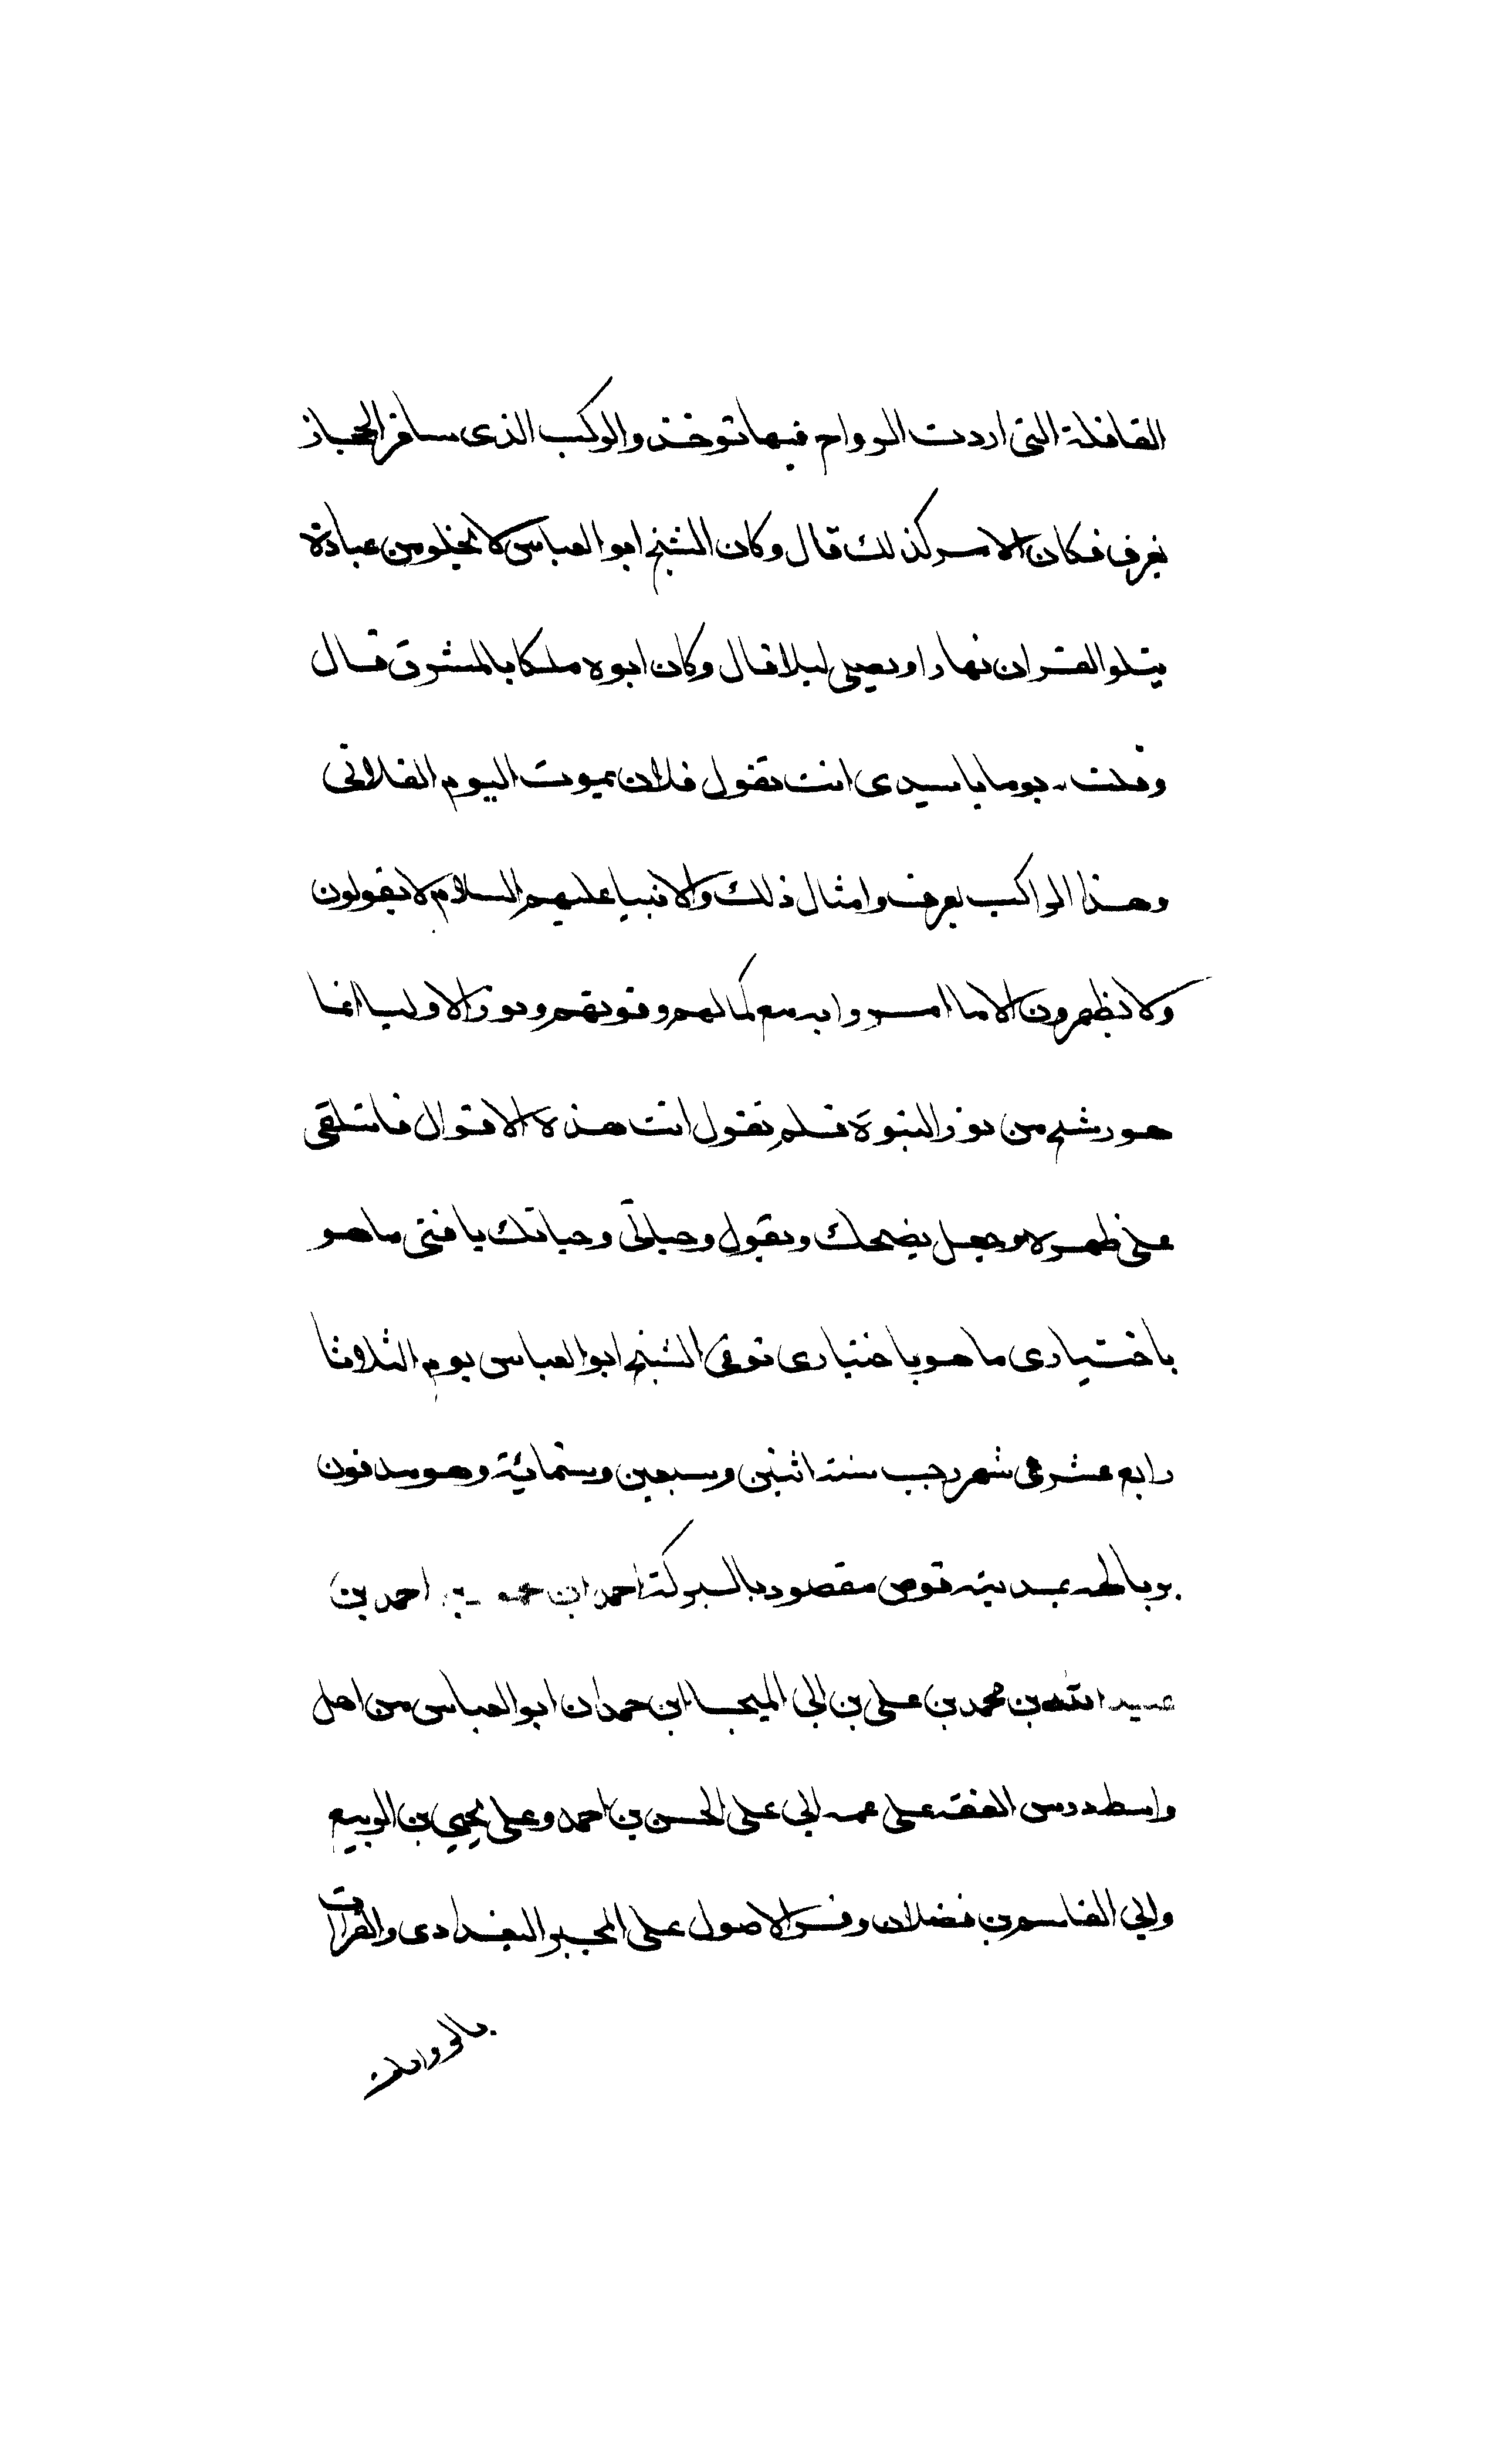 القافلة التى اردت الرواح فيها توخذ والركب الذى سافر الحجاز
يغرق فكان الامر كذلك قال وكان الشيخ ابو العباس لا يخلو من عبادة
يتلو القران نهارا ويصلى ليلا قال وكان ابوه ملكا بالمشرق قال
وقلت يوما يا سيدى انت تقول فلان يموت اليوم الفلانى
وهذا المراكب يغرق وامثال ذلك والانبيا عليهم السلام لا يقولون
ولا يظهرون الا ما امروا به مع كمالهم وقوتهم ونور الاوليا انما
هو رشح من نور النبوة فلم تقول انت هذه الاقوال فاستلقى
على ظهره وجعل يضحك ويقول وحياتى وحياتك يا فتى ما هو
باختيارى ما هو باختيارى توفى الشيخ ابو العباس يوم الثلاثا
رابع عشر فى شهر رجب سنة اثنين وسبعين وستمائة وهو مدفون
برباطه بمدينة قوص مقصود بالبركة احمد ابن احمد بن
عبيد الله بن محمد بن على بن ابى الهيجا ابن حمدان ابو العباس من اهل
واسط درس الفقه على عمه ابى على الحسن بن احمد وعلى يحيى بن الربيع
وابى القاسم بن فضلان وقرا الاصول على المجير البغدادى والقرات
بالروايات